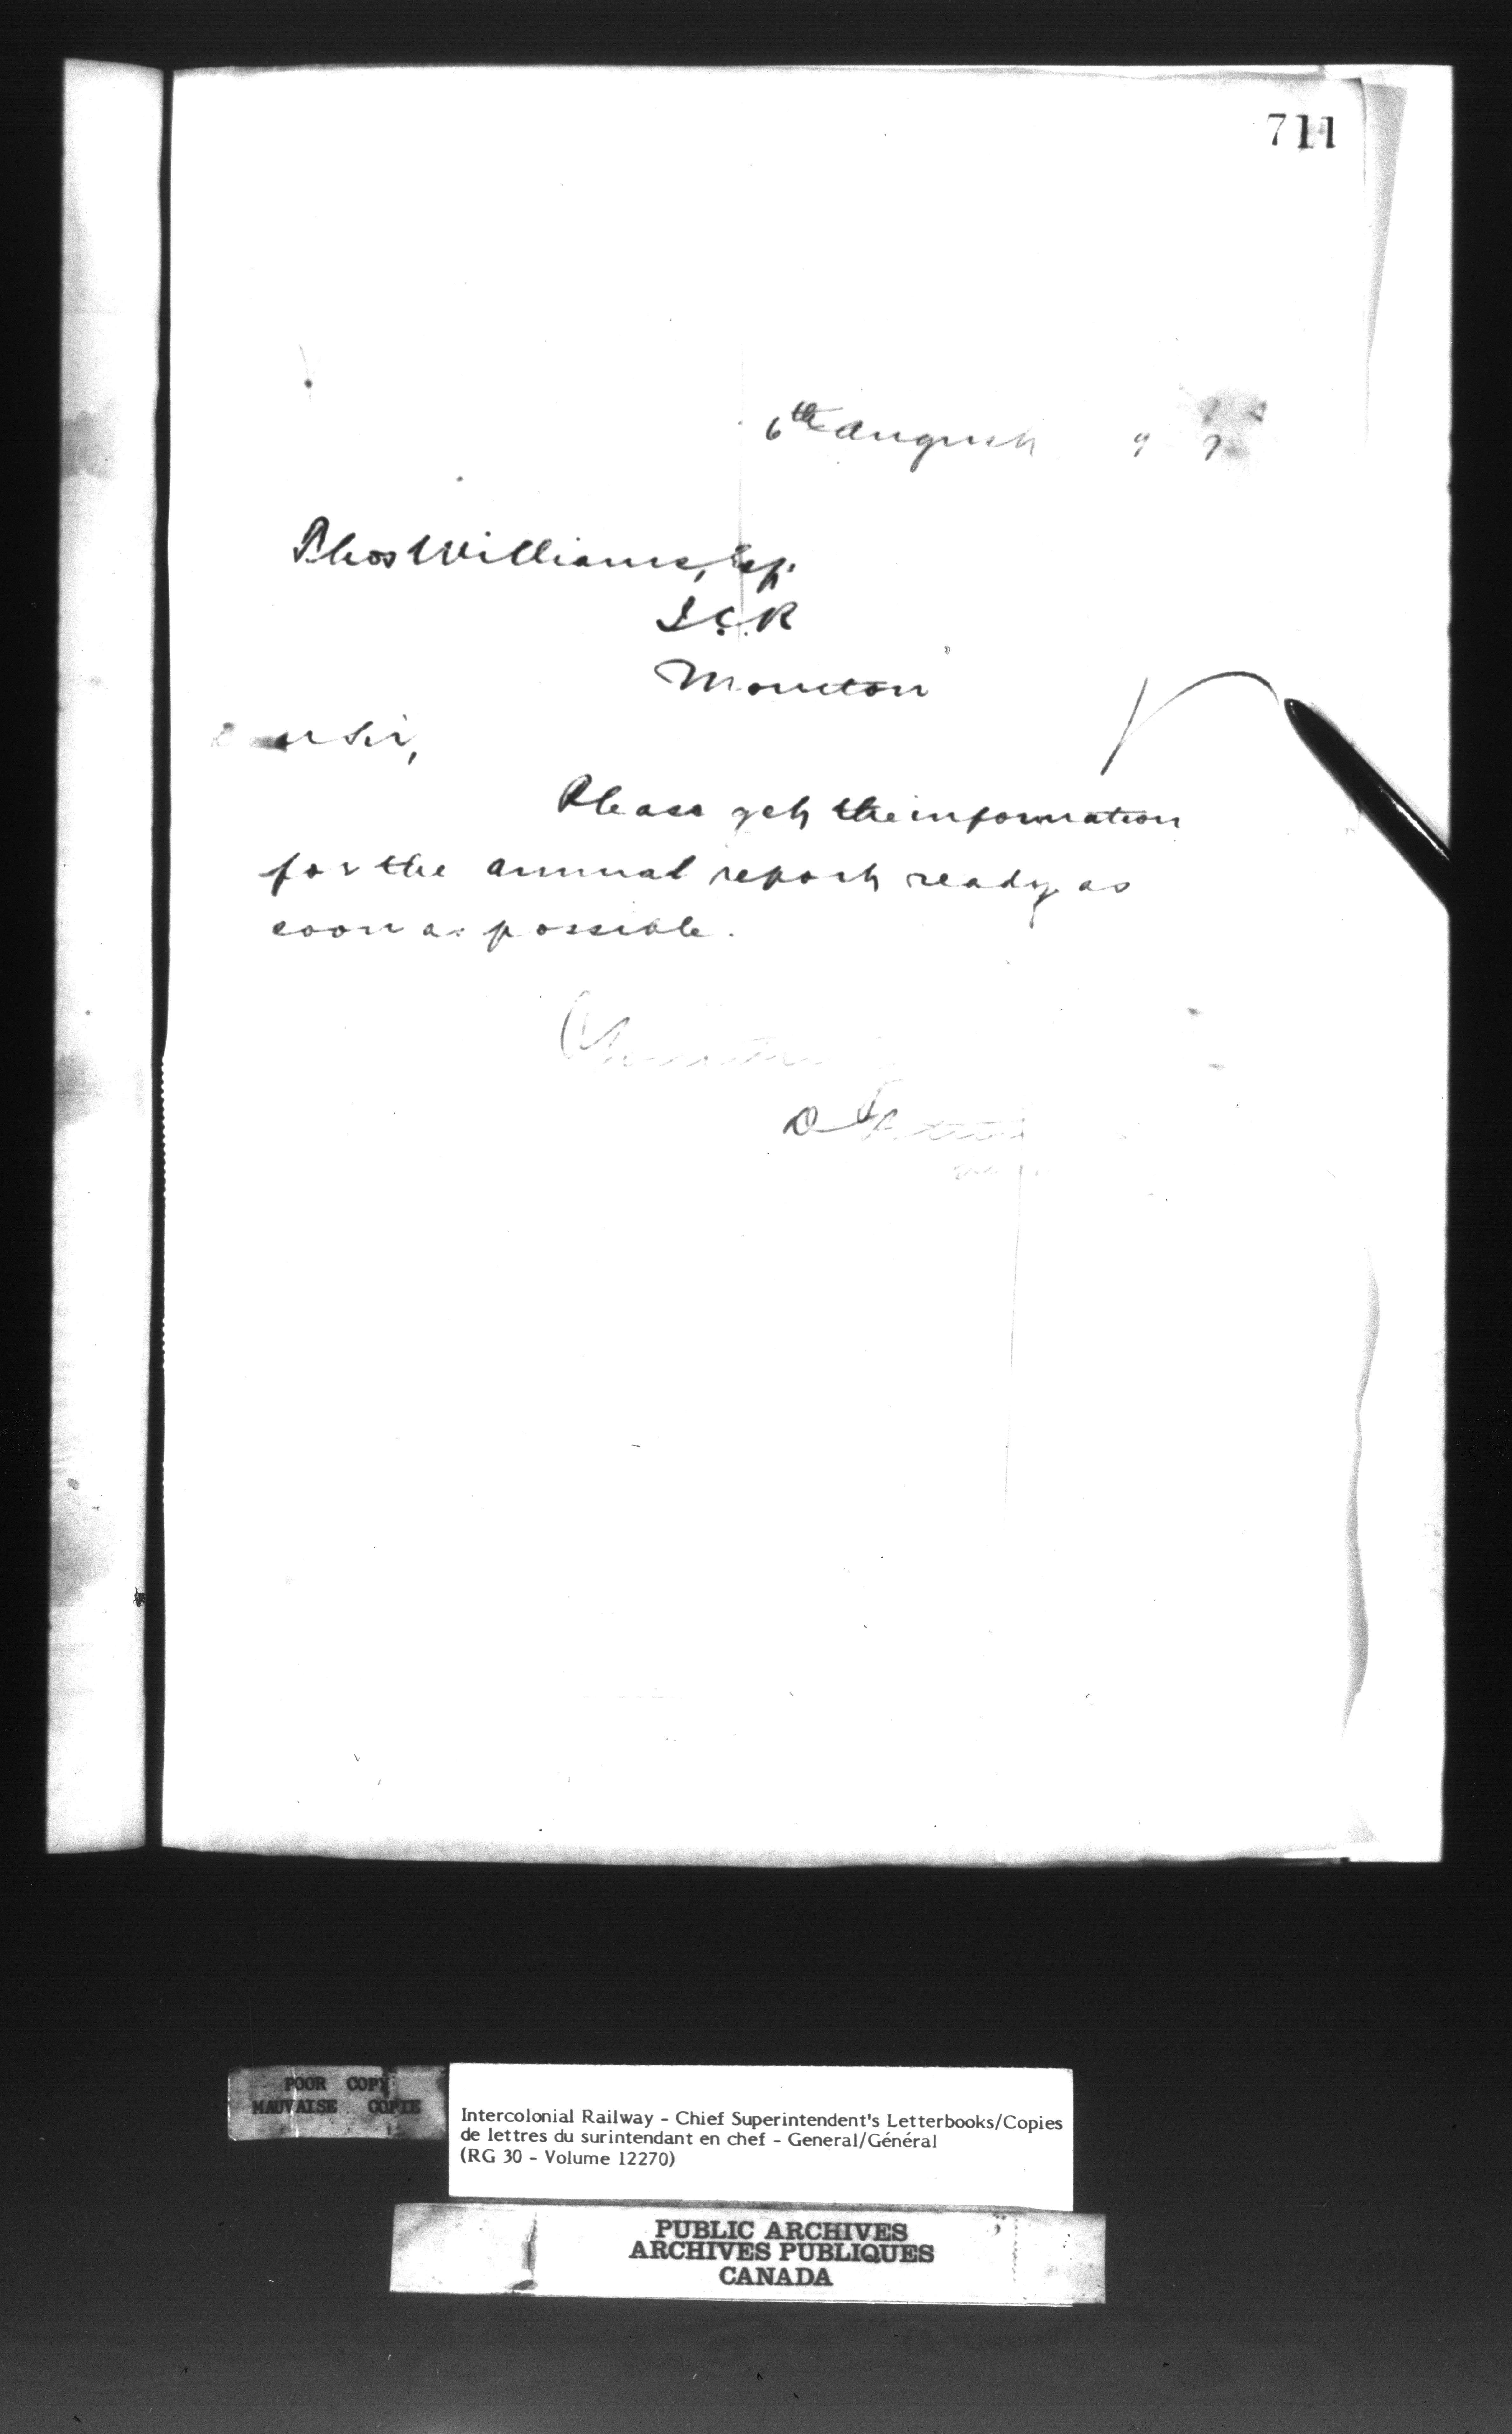 711
6th August 9
Thos Williams, Esq.
I.C.R
Moncton
Dear Sir,
Please get the information
for the annual report ready as
soon as possible.
D
POOR COPY
MAUVAISE COPIE
Intercolonial Railway - Chief Superintendent's Letterbooks/Copies
de lettres du surintendant en chef - General/Général
(RG 30 - Volume 12270)
PUBLIC ARCHIVES
ARCHIVES PUBLIQUES
CANADA